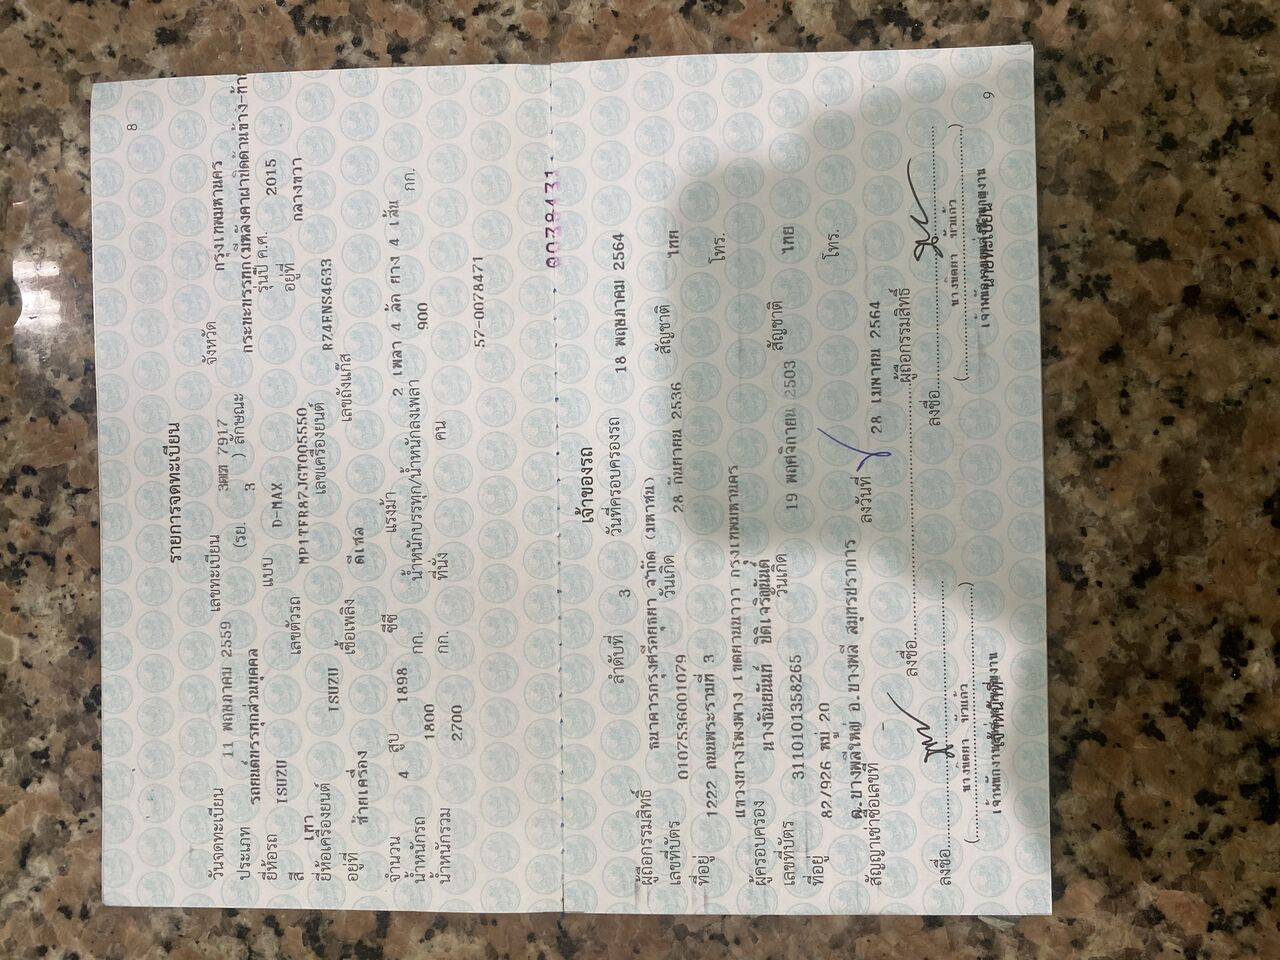 8
รายการจดทะเบียน
วันจดทะเบียน 11 พฤษภาคม 2559 เลขทะเบียน 7917 จังหวัด กรุงเทพมหานคร
ประเภท รถยนต์บรรทุกส่วนบุคคล (รย. 3 ) ลักษณะ กระบะบรรทุก(มีหลังคาฝาปิดด้านข้าง-ท้า
ยี่ห้อรถ ISUZU แบบ D-MAX รุ่นปี ค.ศ. 2015
สี เทา เลขตัวรถ MP1TFR87JGT005550 อยู่ที่ กลางขวา
ยี่ห้อเครื่องยนต์ ISUZU เลขเครื่องยนต์ RZ4ENS4633
อยู่ที่ ซ้ายเครื่อง เชื้อเพลิง ดีเซล เลขถังแก๊ส
จำนวน 4 สูบ 1898 ซีซี แรงม้า 2 เพลา 4 ล้อ ยาง 4 เส้น
น้ำหนักรถ 1800 กก. น้ำหนักบรรทุก/น้ำหนักลงเพลา 900 กก.
น้ำหนักรวม 2700 กก. ที่นั่ง คน
57-0078471
เจ้าของรถ
ลำดับที่ 3 วันที่ครอบครองรถ 18 พฤษภาคม 2564
ผู้ถือกรรมสิทธิ์ ธนาคารกรุงศรีอยุธยา จำกัด (มหาชน)
เลขที่บัตร 0107536001079 วันเกิด 28 กันยายน 2536 สัญชาติ ไทย
ที่อยู่ 1222 ถนนพระรามที่ 3 โทร.
แขวงบางโพงพาง เขตยานนาวา กรุงเทพมหานคร
ผู้ครอบครอง นางธันยนันท์
เลขที่บัตร 3110101358265 วันเกิด 19 พฤศจิกายน 2503 สัญชาติ ไทย
ที่อยู่ 82/926 หมู่ 20 โทร.
ต.บางพลีใหญ่ อ.บางพลี สมุทรปราการ
สัญญาเช่าซื้อเลขที่ - ลงวันที่ 28 เมษายน 2564
ลงชื่อ ผู้ถือกรรมสิทธิ์
ลงชื่อ ลงชื่อ
9